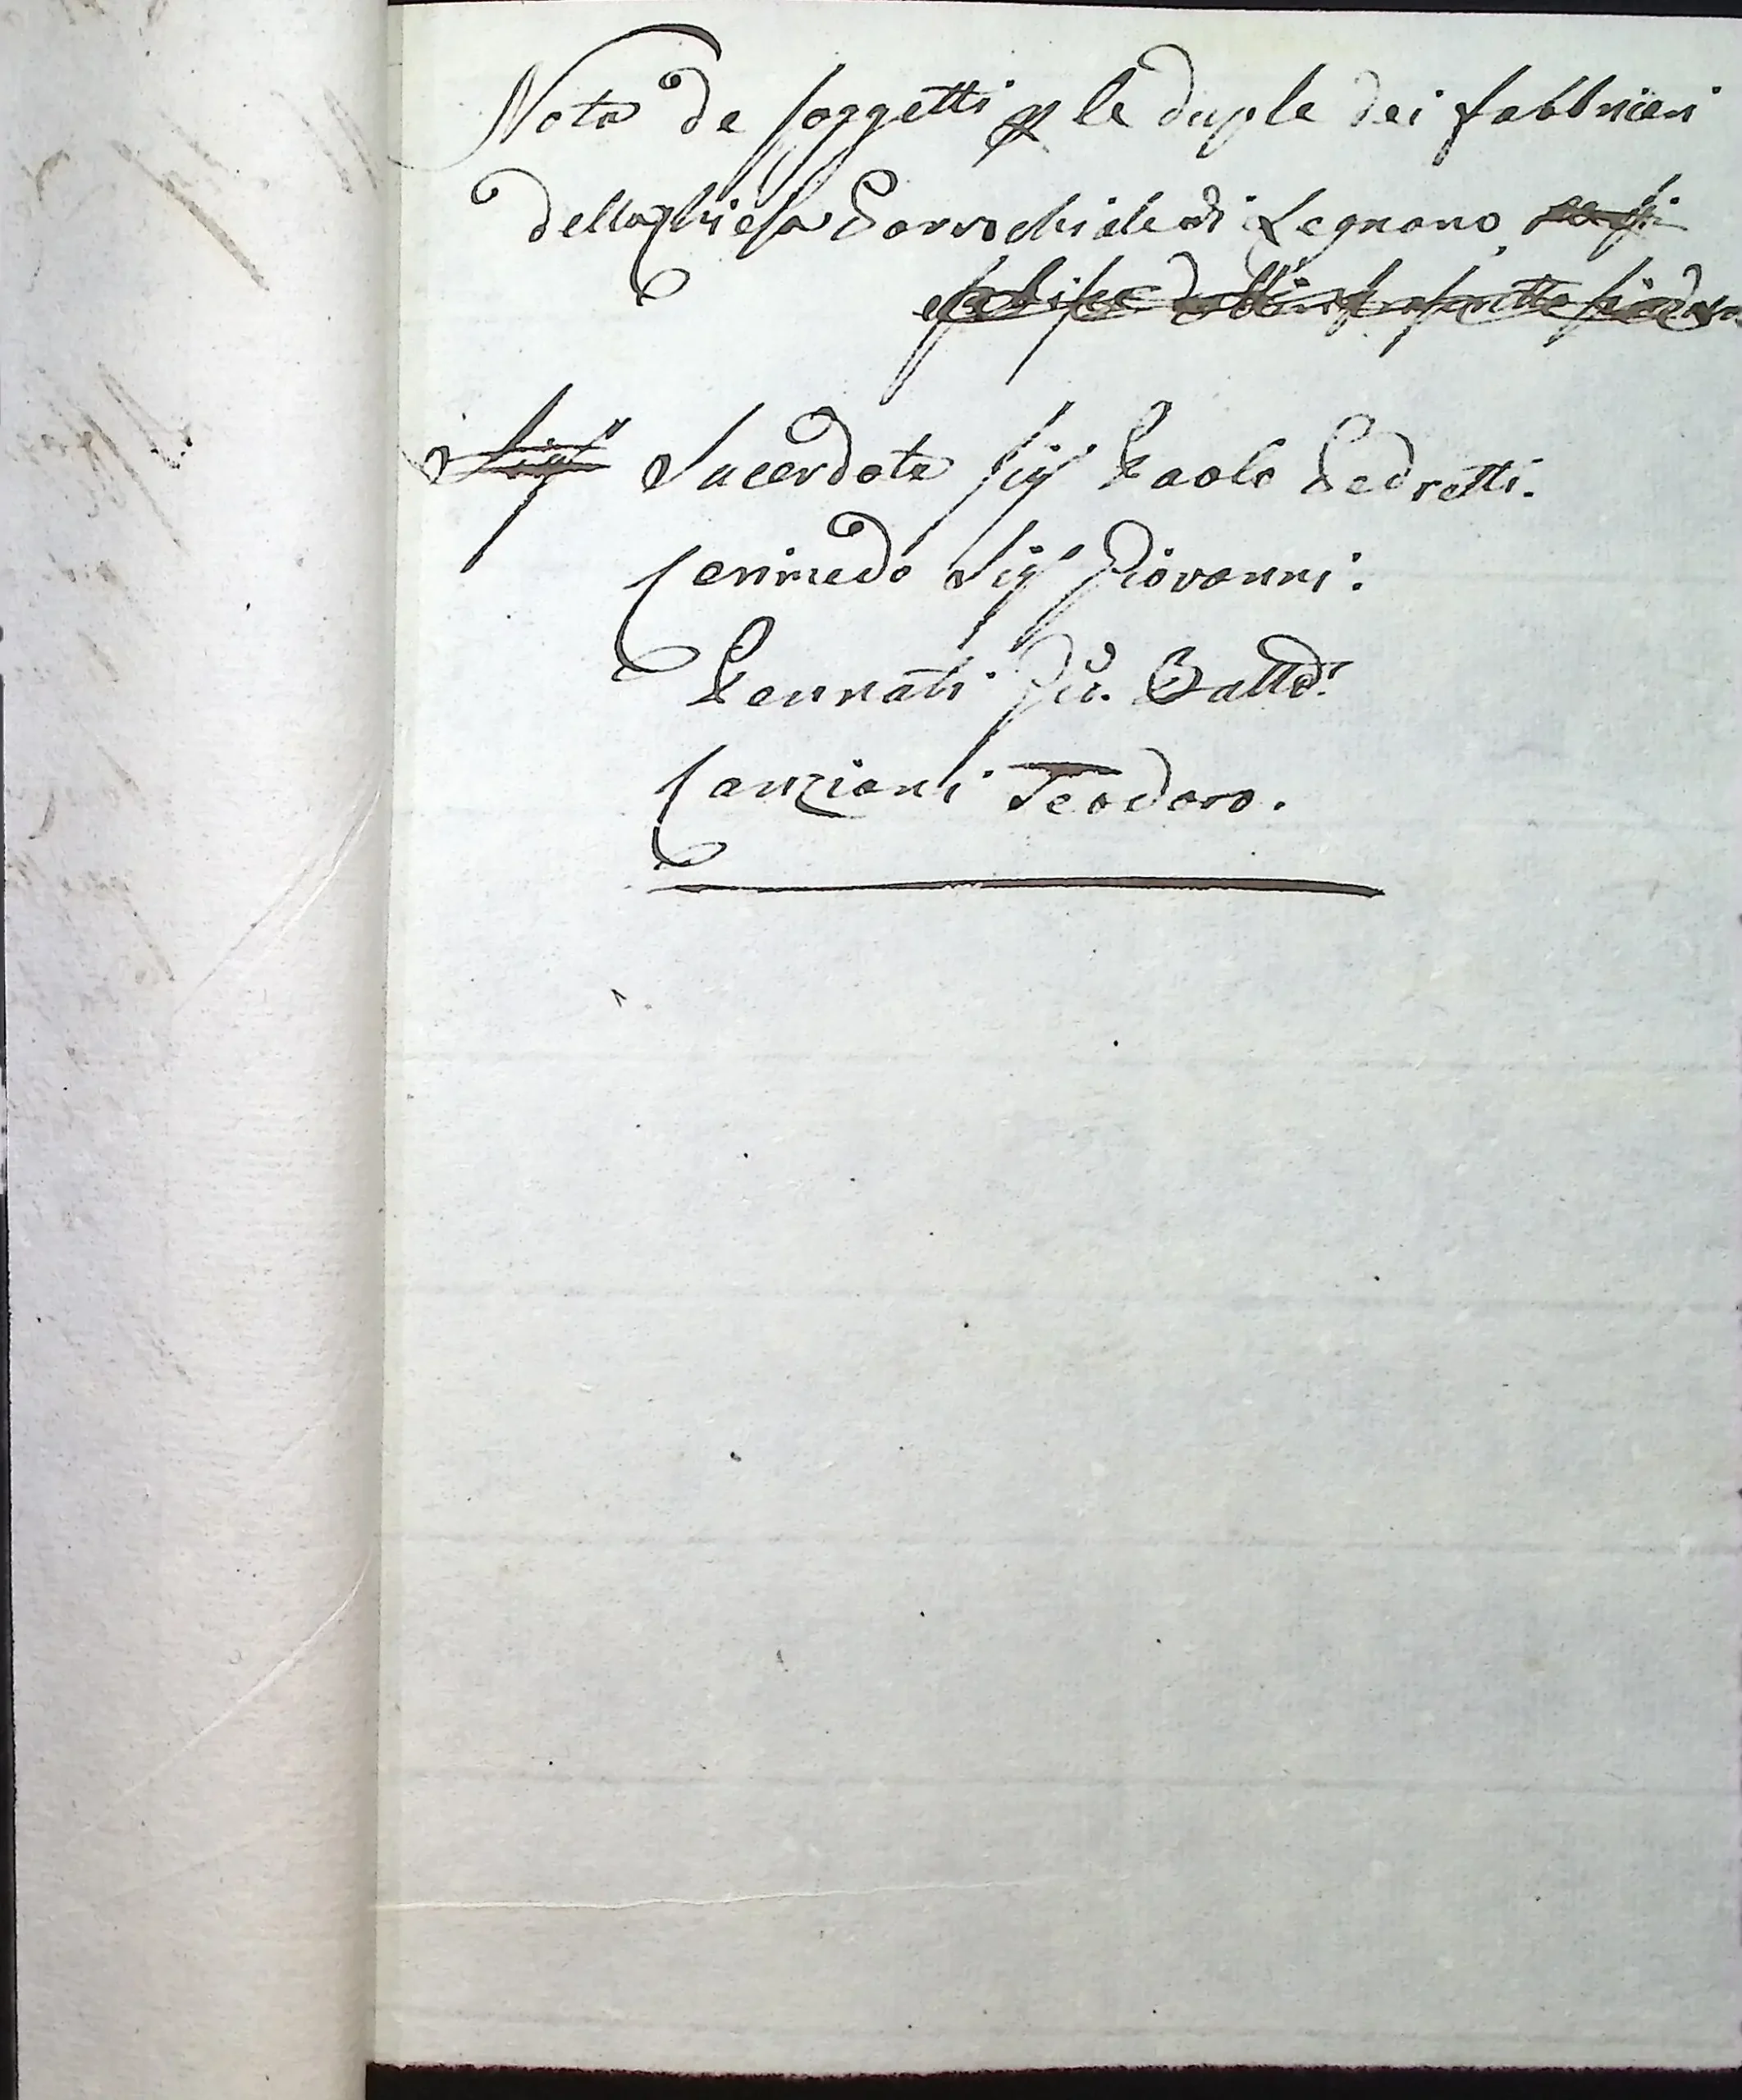 Nota de soggetti per le duple dei fabbricieri
della Chiesa Parrochiale di Legnano
Sacerdote Sigr Paolo Pedretti.
Cerimedo Sigr Giovanni.
Pennati Gio. Batta.
Canziani Teodoro.